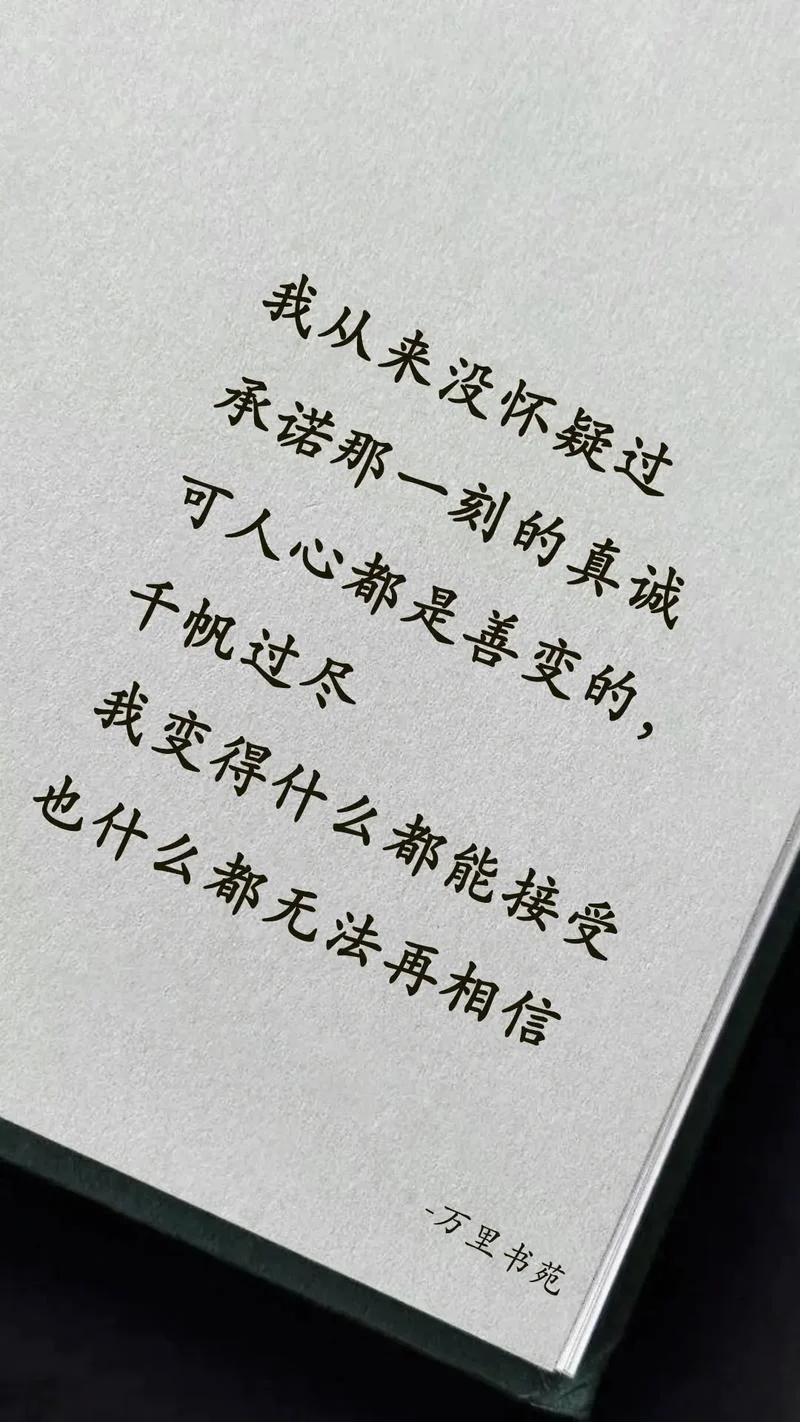 我从来没怀疑过
承诺那一刻的真诚
可人心都是善变的，
千帆过尽
我变得什么都能接受
也什么都无法再相信
-万里书苑